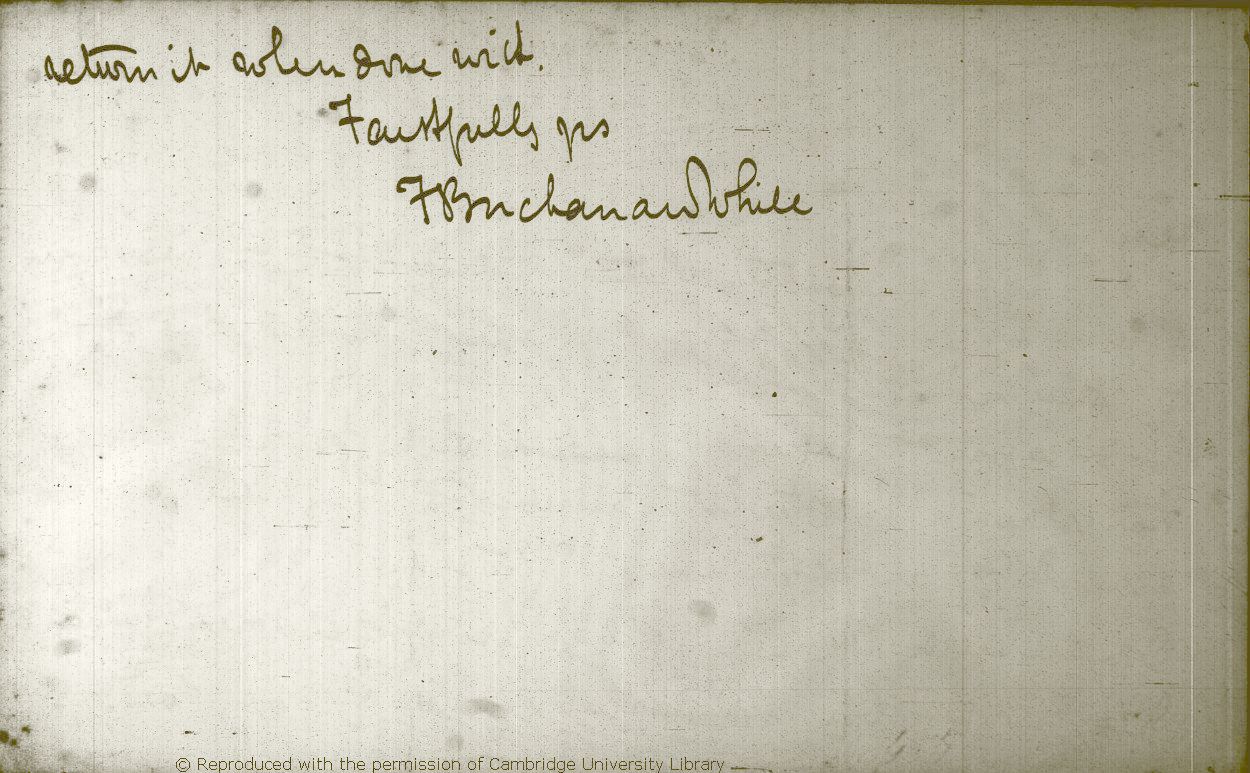 return it when done with.
Faithfully yrs
F Buchanan White
© Reproduced with the permission of Cambridge University Library